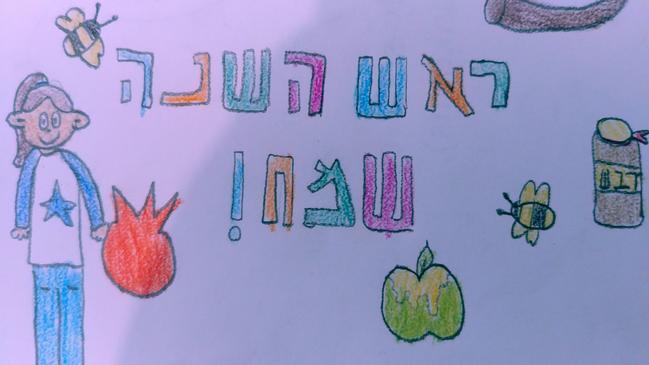 ראש השנה
שמח!
דבש